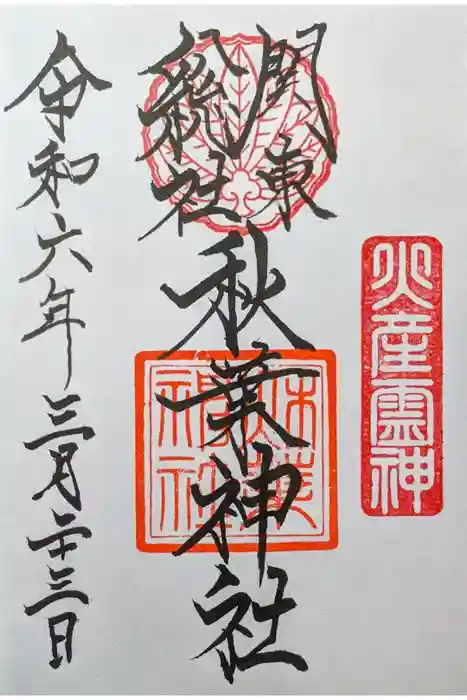 火産霊神
関東
総社
秋葉神社
秋葉神社
令和六年三月二十三日